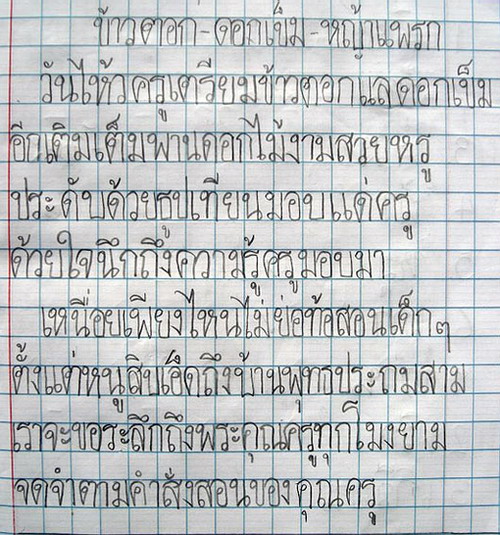 ข้าวตอก-ดอกเข็ม-หญ้าแพรก
วันไหว้ครูเตรียมข้าวตอกแลดอกเข็ม
อีกเติมเต็มพานดอกไม้งามสวยหรู
ประดับด้วยธูปเทียนมอบแด่ครู
ด้วยใจนึกถึงความรู้ครูมอบมา
เหนื่อยเพียงไหนไม่ย่อท้อสอนเด็กๆ
ตั้งแต่หนูสิบเอ็ดถึงบ้านพุทธประถมสาม
เราจะขอระลึกถึงพระคุณครูทุกโมงยาม
จดจำตามคำสั่งสอนของคุณครู